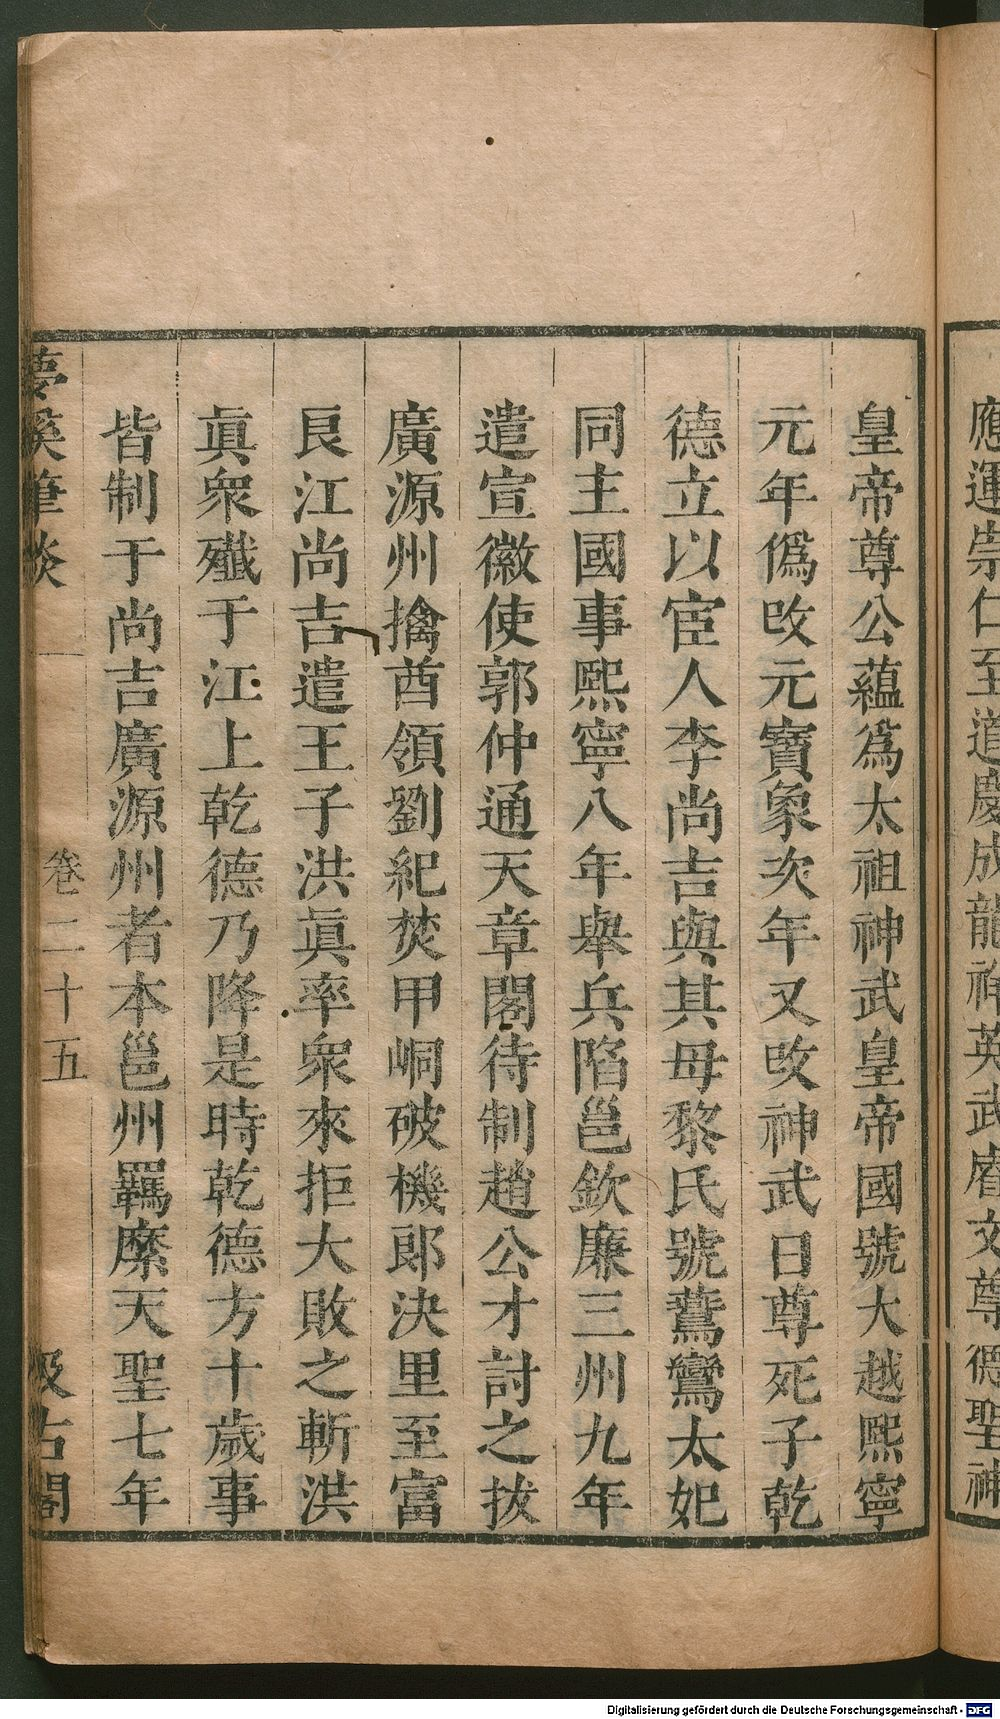 應運崇仁至道慶成龍祥英武睿文尊德聖神
皇帝尊公蘊爲太祖神武皇帝國號大越熙寧
元年僞改元寶象次年又改神武日尊死子乾
德立以宦人李尚吉與其母黎氏號鷰鸞太妃
同主國事熙寧八年舉兵陷邕欽廉三州九年
遣宣徽使郭仲通天章閣待制趙公才討之拔
廣源州擒酋領劉紀焚甲峒破機郎決里至富
良江尚吉遣王子洪眞率衆來拒大敗之斬洪
眞衆殲于江上乾德乃降是時乾德方十歲事
皆制于尚吉廣源州者本邕州羈縻天聖七年
夢溪筆談 卷二十五 汲古閣
Digitalisierung gefördert durch die Deutsche Forschungsgemeinschaft - DFG